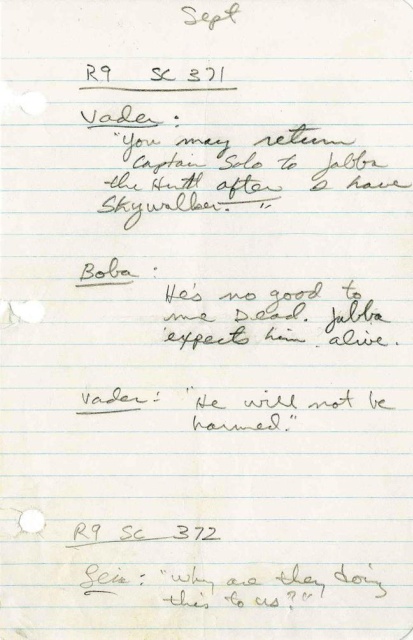 Sept
R9 SC 371
Vader:
"You may return
Captain Solo to Jabba
the Hutt after I have
Skywalker."
Boba:
He's no good to
me Dead. Jabba
expects him alive.
Vader: "He will not be
harmed."
R9 SC 372
Leia: "Why are they doing
this to us?"